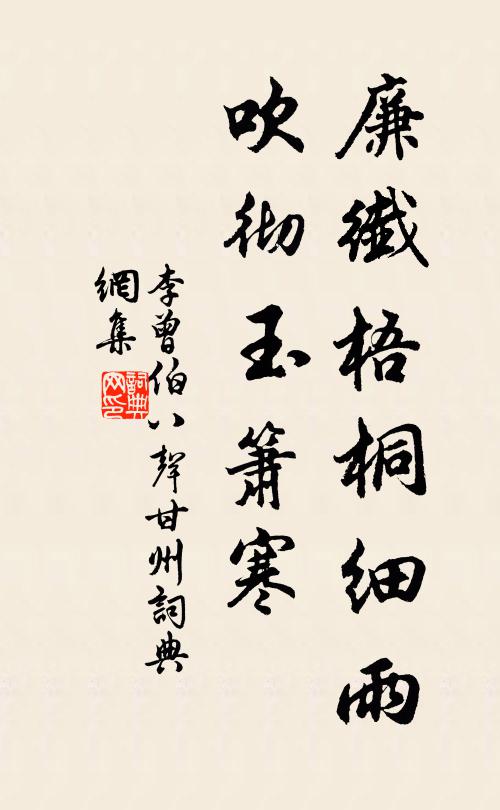 廉纖梧桐細雨
吹彻玉簫寒
李曾伯八聲甘州詞典
網集
詞典
网印